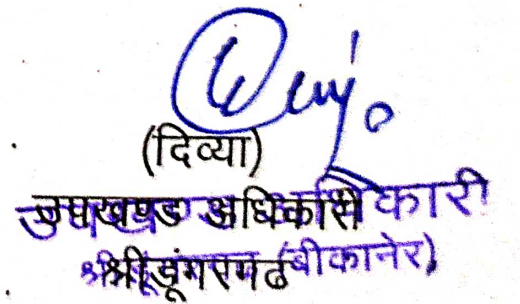 (दिव्या)
उपखण्ड अधिकारी
श्रीडूंगरगढ (बीकानेर)